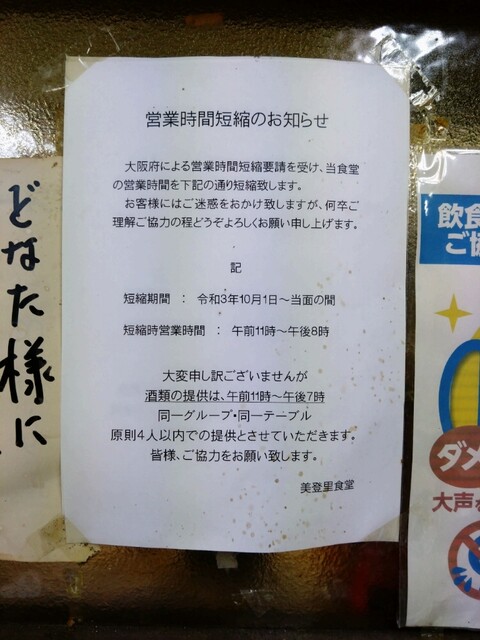 営業時間短縮のお知らせ
大阪府による営業時間短縮要請を受け、当食堂
の営業時間を下記の通り短縮致します。
お客様にはご迷惑をおかけ致しますが、何卒ご
理解ご協力の程どうぞよろしくお願い申し上げます。
記
短縮期間 ： 令和3年10月1日～当面の間
短縮時営業時間 ： 午前11時～午後8時
大変申し訳ございませんが
酒類の提供は、午前11時～午後7時
同一グループ・同一テーブル
原則4人以内での提供とさせていただきます。
皆様、ご協力をお願い致します。
美登里食堂
どなた様に
飲食
ご協
ダメ
大声